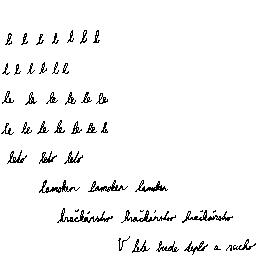 l l l l l l l
l l l l l l
le le le le le le
le le le le le le l
leto leto leto
lamoken lamoken lamoken
hračkárstvo hračkárstvo hračkárstvo
V lete bude teplo a sucho